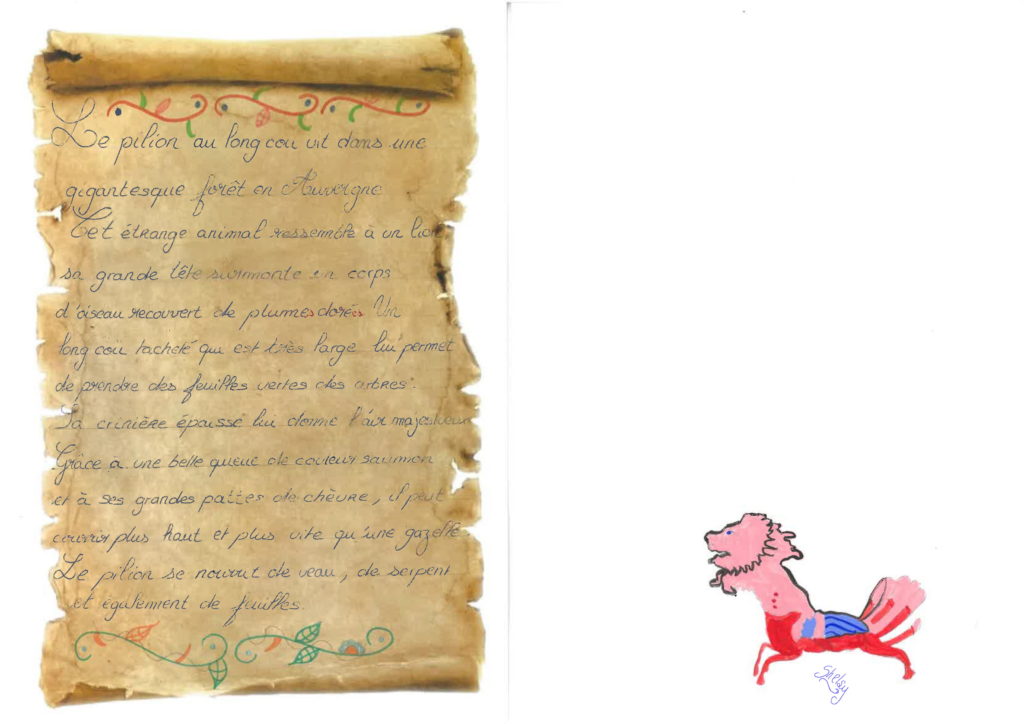 Le pilion au long cou vit dans une
gigantesque forêt en Auvergne
Cet étrange animal ressemble à un lion
sa grande tête surmonte un corps
d'oiseau recouvert de plumes dorées Un
long cou tacheté qui est très large lui permet
de prendre des feuilles vertes des arbres.
Sa crinière épaisse lui donne l'air majestueux
Grâce à une belle queue de couleur saumon
et à ses grandes pattes de chèvre, il peut
courir plus haut et plus vite qu'une gazelle.
Le pilion se nourrit de veau, de serpent
et également de feuilles.
Shelsy